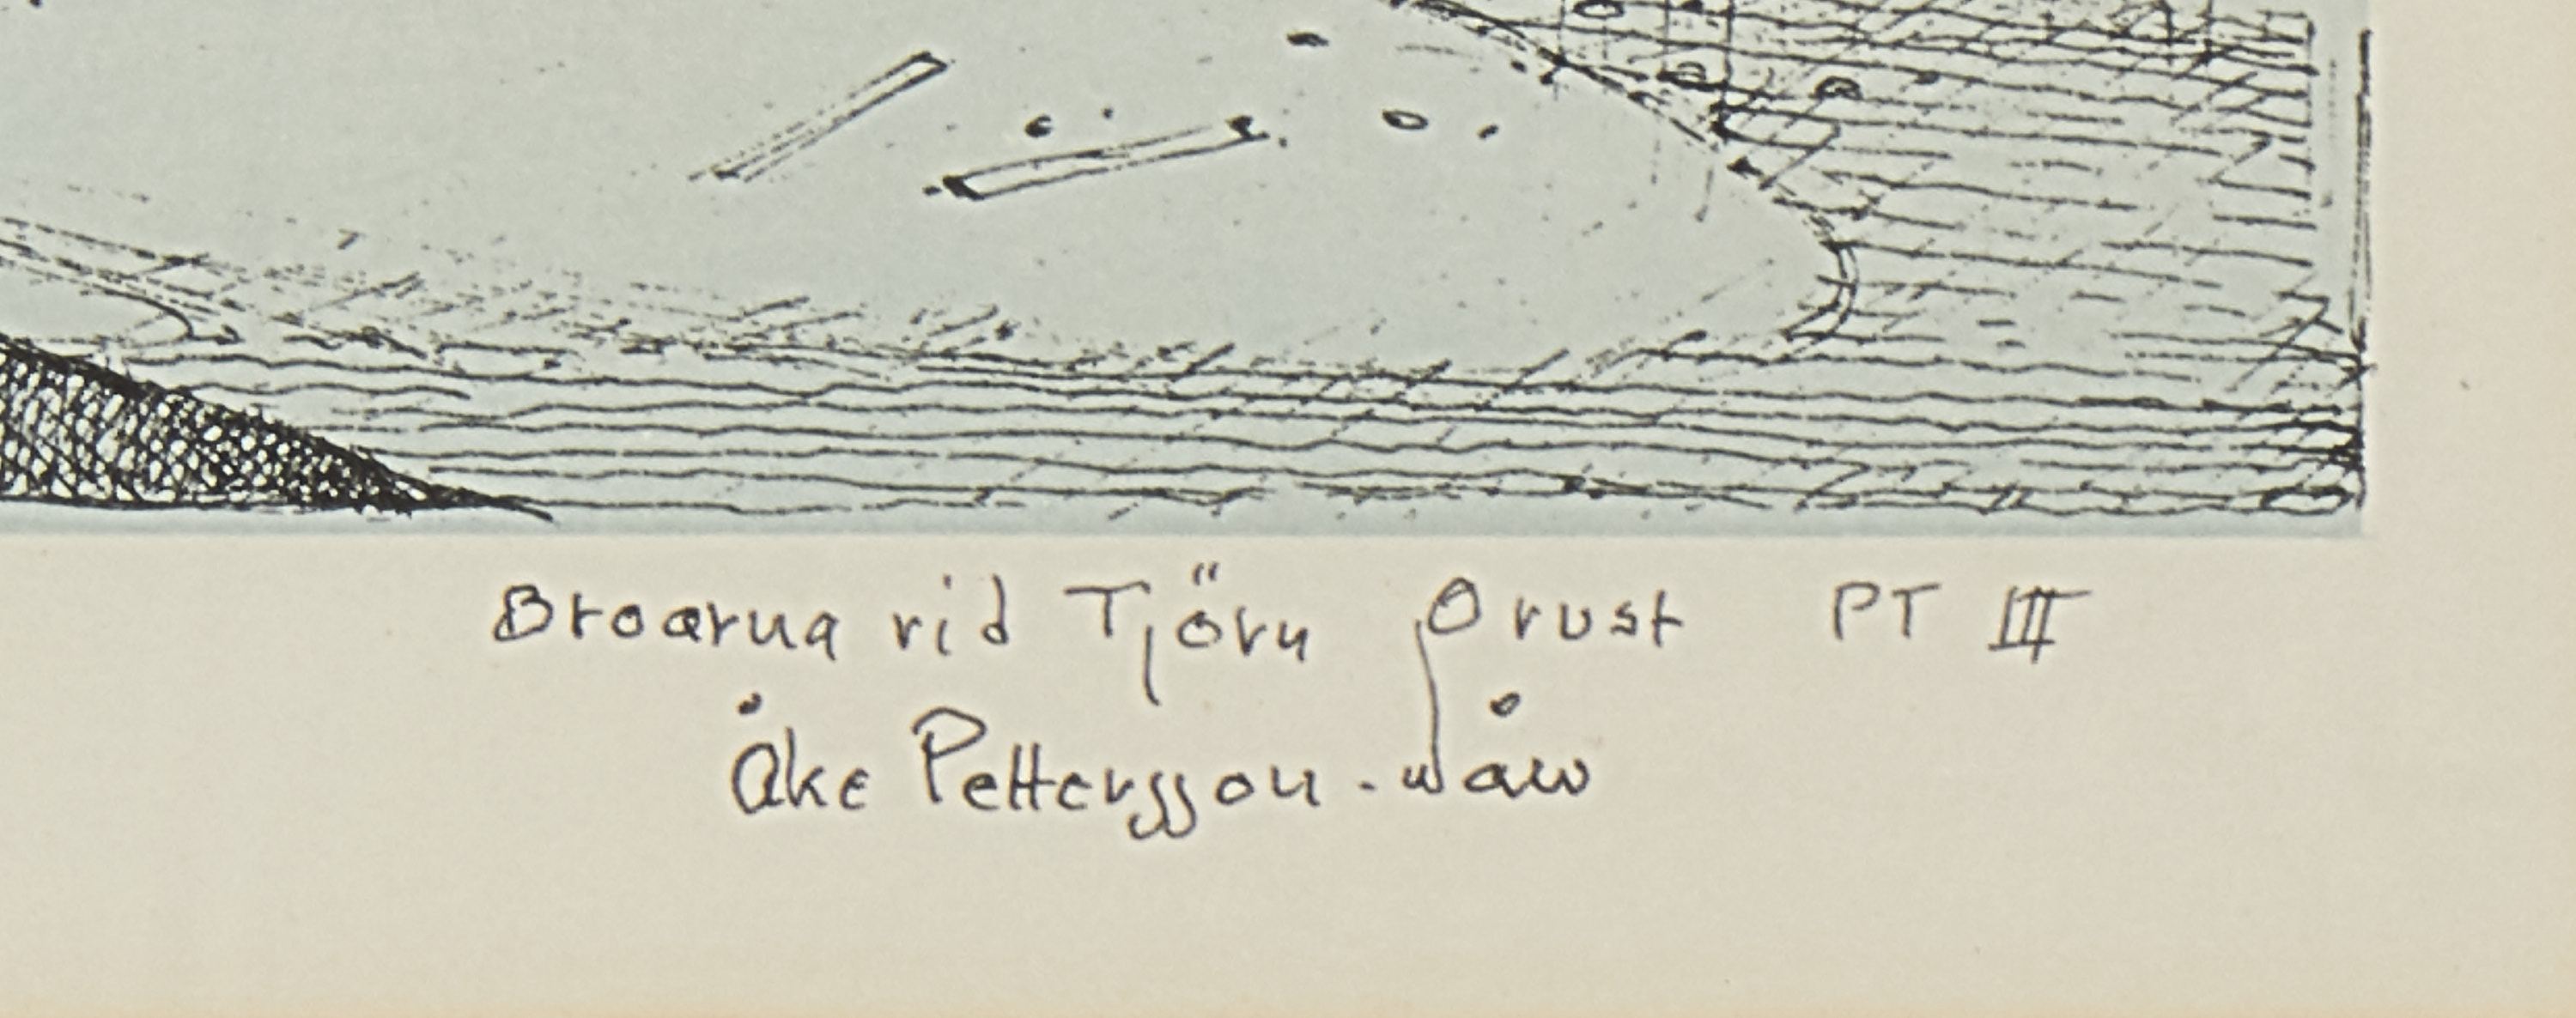 Broarna vid Tjörn Orust PT III
Åke Pettersson - Nåw